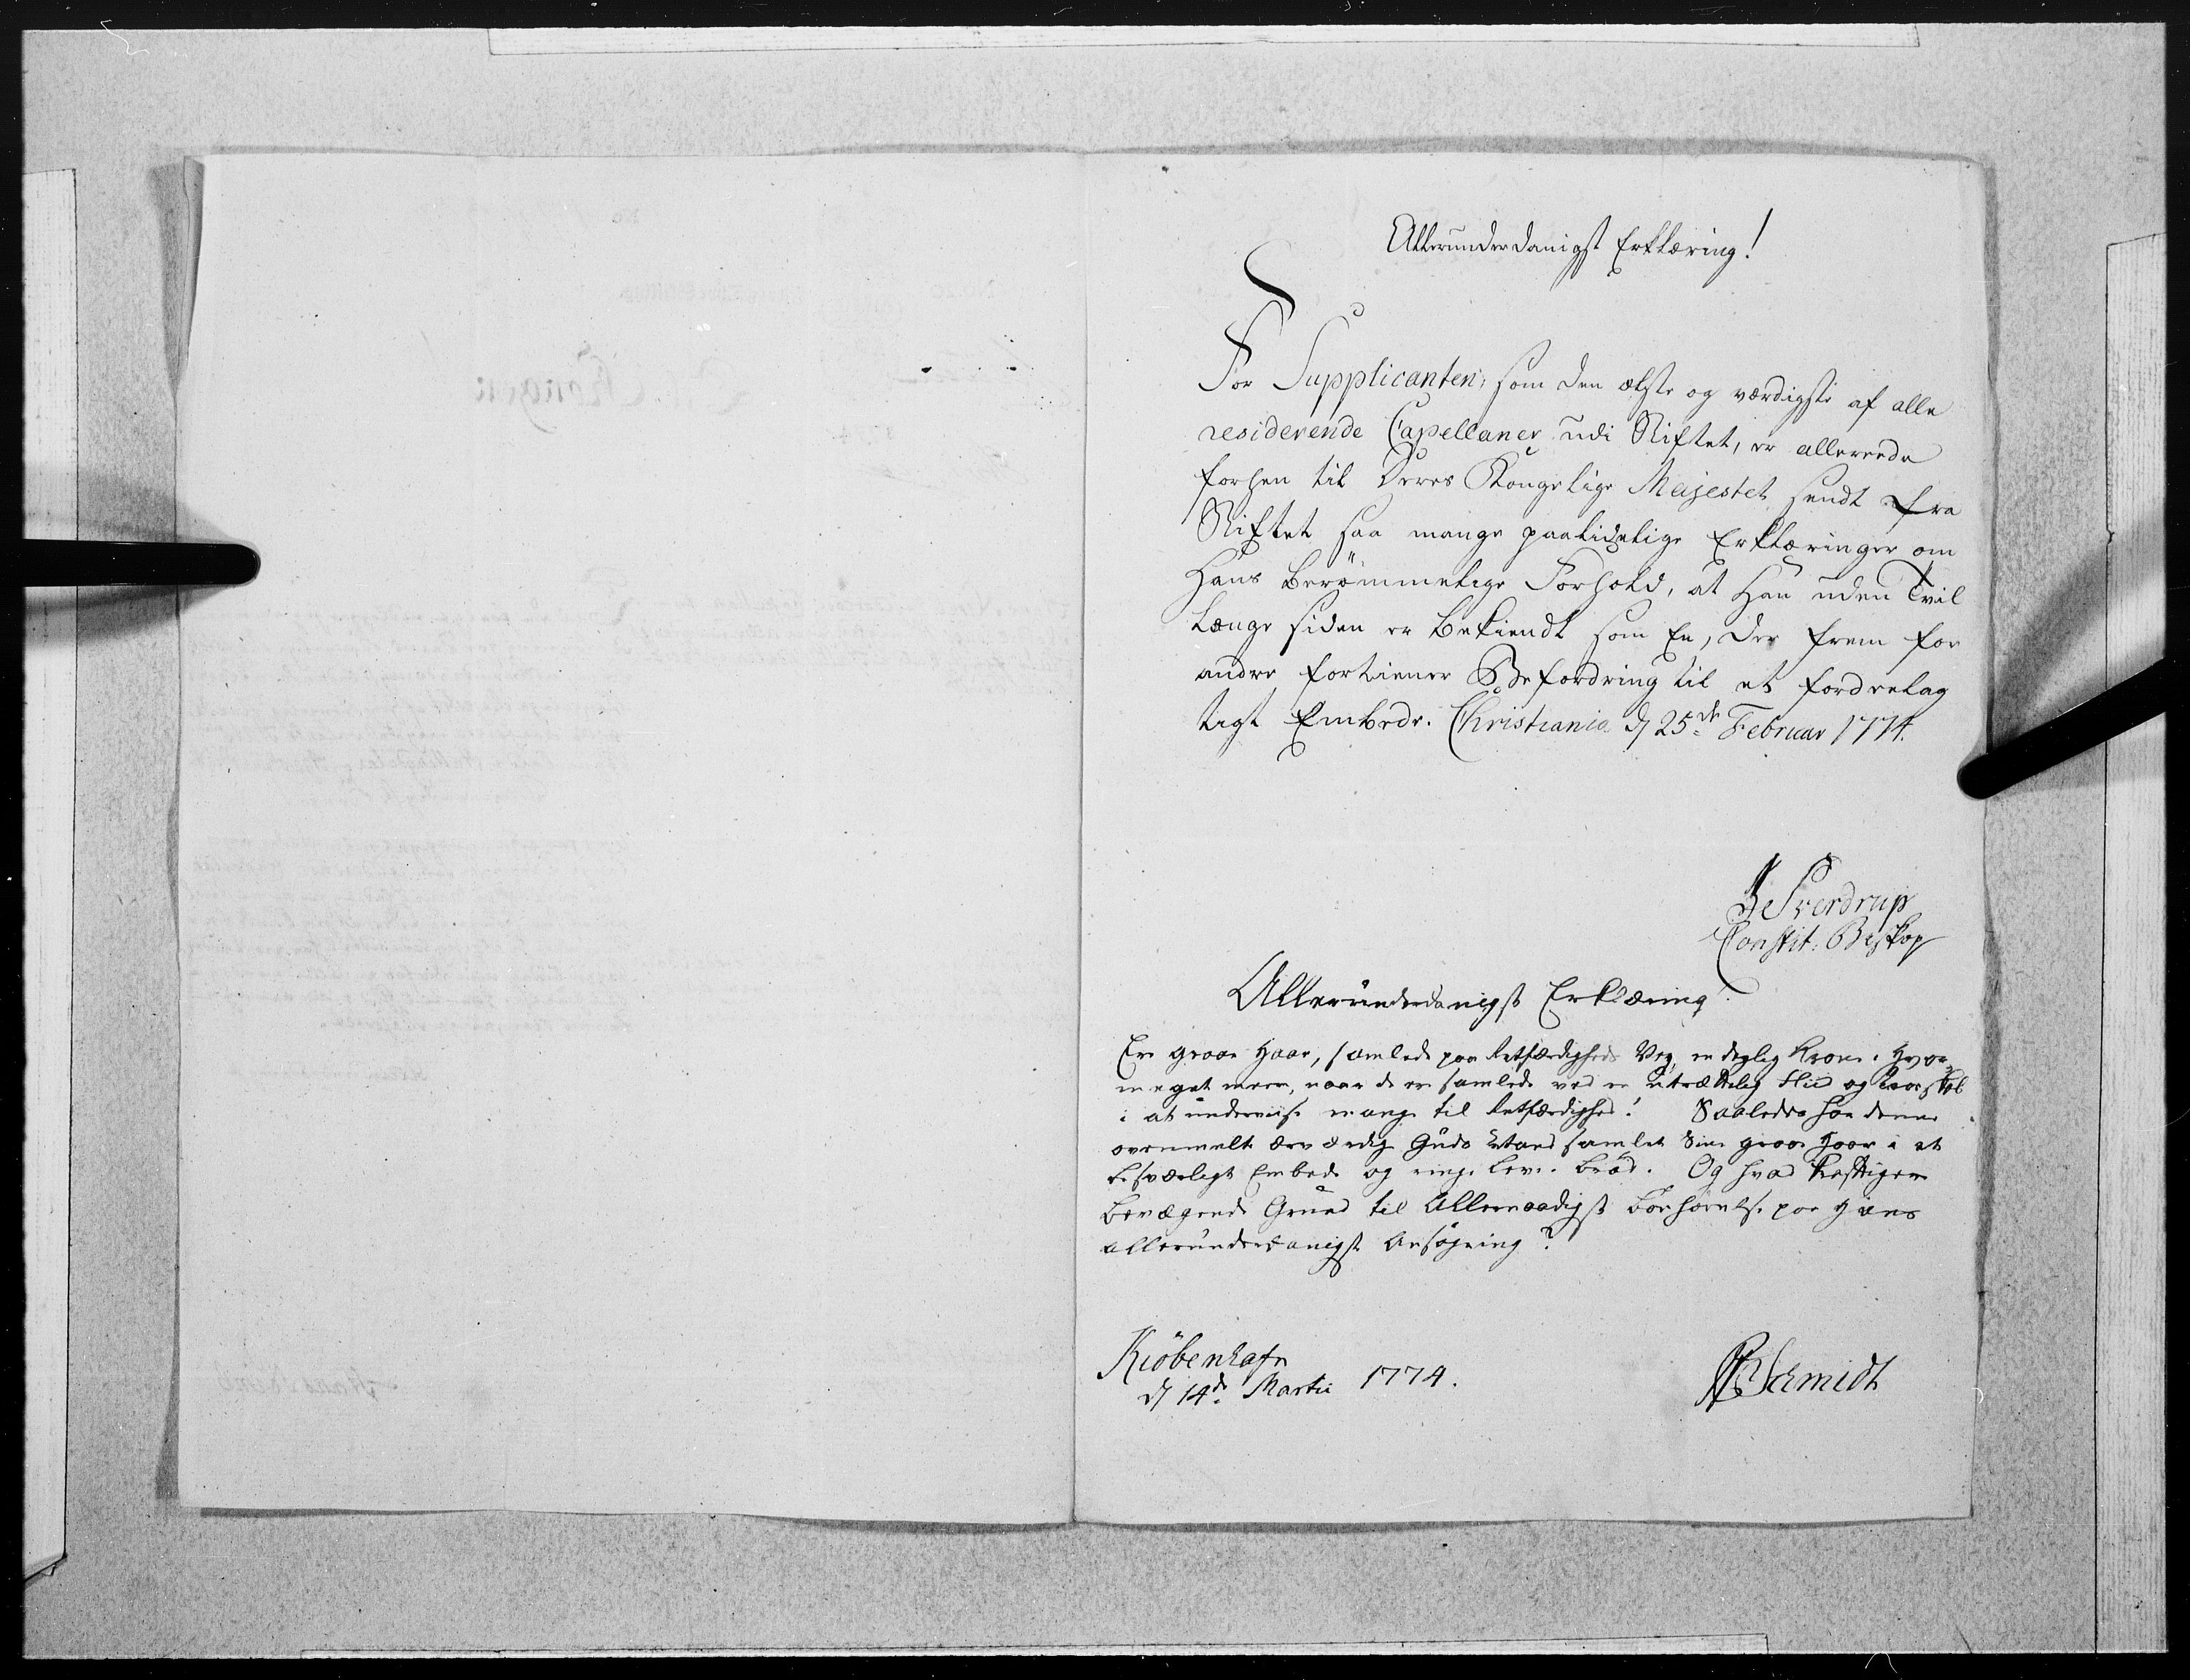 Allerunderdanigst Erklæring!
For Supplicanten, som den ælste og værdigste af alle
residerende Capellaner udi Stiftet, er allerede
forhen til Deres Kongelige Majestet sendt fra
Stiftet saa mange paalidelige Erklæringer om
Hans berømmelige Forhold, at Han uden Tvil
længe siden er bekiendt som En, der frem for
andre fortiener Befordring til et fordeelag
tigt Embede. Christiania d 25de Februar 1774.
J Sverdrup
Constit. Biskop
Allerunderdanigst Erklæring!
Ere graae Haar, samlede paa Retfærdigheds Vey, en deylig Krone. Hvor
meget meere, naar de ere samlede ved en utrættelig Fliid og
i at underviise mange til Retfærdighed! Saaledes har denne
ovenmelte ærværdige Guds Mand samlet Sine graae Haar i et
besværligt Embede og ringe Leve-Brød. Og hvad kraftigere
bevægende Grund til Allernaadigst Bønhørelse paa Hans
allerunderdanigst Ansøgning?
Kiöbenhafn
d 14de Martii 1774.
Schmidt